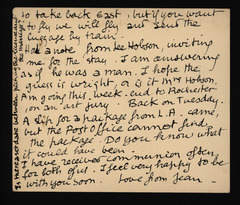 to take back East, but if you want
to fly we will fly and send the
luggage by train.
Had a note from Lee Hobson, inviting
me for the stay. I am answering
as if he was a man. I hope the
guess is wright, or is it Mrs Hobson.
I'm going this week end to Rochester
on an art jury. Back on Tuesday.
A slip for a package from L.A. came,
but the Post Office cannot find
the package. Do you know what
it could have been.
I have received communion often
for both of us. I feel very happy to be
with you soon Love from Jean.